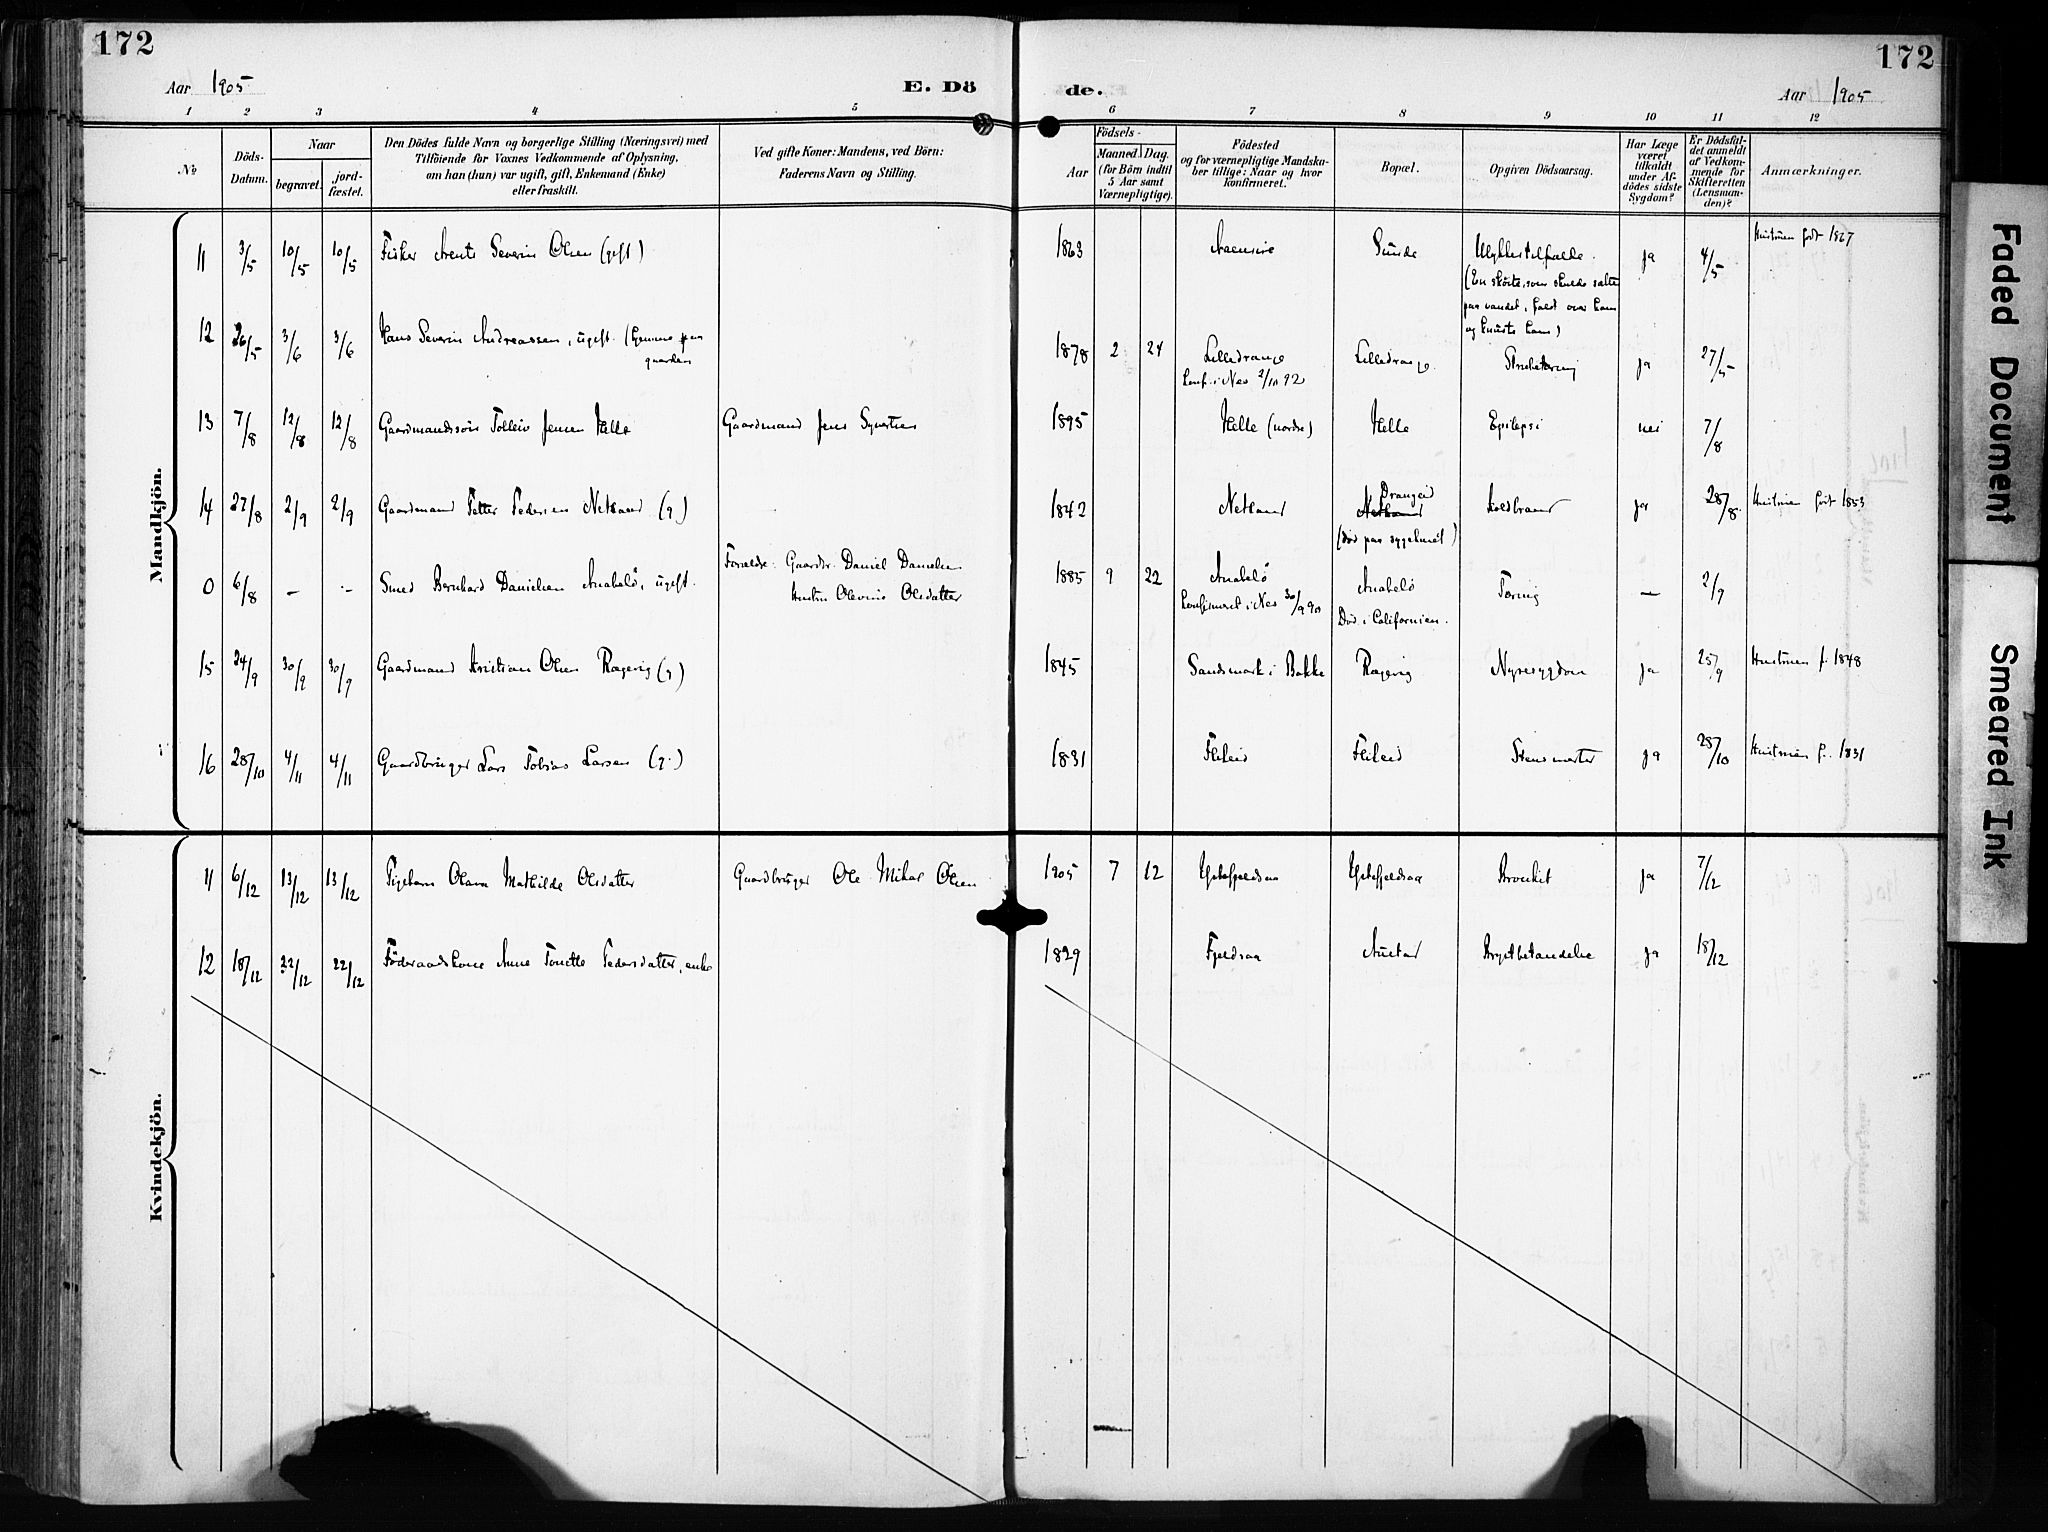 172
172
Aar 1905
E. Dö
de.
Aar 1905
1 2 3 4 5 6 7 8 9 10 11 12
No
Döds-
Datum.
Naar
begravet.
jord-
fæstet.
Den Dödes fulde Navn og borgerlige Stilling (Næringsvei) med
Tilföiende for Voxnes Vedkommende af Oplysning,
om han (hun) var ugift, gift, Enkemand (Enke)
eller fraskilt.
Ved gifte Koner: Mandens, ved Börn:
Faderens Navn og Stilling.
Födsels-
Aar
Maaned. Dag.
(for Börn indtil
5 Aar samt
Værnepligtige).
Födested
og for værnepligtige Mandska-
ber tillige: Naar og hvor
konfirmeret.
Bopæl.
Opgiven Dödsaarsag.
Har Læge
været
tilkaldt
under Af-
dödes sidste
Sygdom?
Er Dödsfal-
det anmeldt
af Vedkom-
mende for
Skifteretten
(Lensman-
den)?
Anmærkninger.
Mandkjön.
11 3/5 10/5 10/5 Fisker Arent Severin Olsen (gift) 1863 Sunde Ulykkestilfælde ja 4/5 Hustruen født 1867
(En skøite, som skulde sættes
paa vandet, faldt over ham
og knuste ham)
12 26/5 3/6 3/6 Hans Severin Andreassen, ugift. (hjemme paa
gaarden
1878 2 24 Lilledrange Lilledrange Strubetæring ja 27/5
konf. i Nes 2/10 92
13 7/8 12/8 12/8 Gaardmandssøn Tolleiv Jensen Helle Gaardmand Jens Syvertsen 1895 Helle (nordre) Helle Epilepsi nei 7/8
14 27/8 2/9 2/9 Gaardmand Petter Pedersen Netland (g.) 1842 Netland Netland Drangeid koldbrand ja 28/8 Hustruen født 1853
(død paa sygehuset)
0 6/8 - - Smed Bernhard Danielsen Anabelø, ugift. Forældre: Gaardbr. Daniel Danielsen
Hustru Olevine Olsdatter
1885 9 22 Anabelø Anabelø Tæring - 2/9
konfirmeret i Nes 30/9 90 Død i Californien.
15 24/9 30/9 30/9 Gaardmand Kristian Olsen Rægevig (g) 1845 Sandsmark i Bakke Rægevig Nyresygdom ja 25/9 Hustruen f. 1848
16 28/10 4/11 4/11 Gaardbruger Lars Tobias Larsen (g.) 1831 Fleseid Fleseid Stensmerter ja 28/10 Hustruen f. 1831
Kvindekjön.
11 6/12 13/12 13/12 Pigebarn Olava Mathilde Olsdatter Gaardbruger Ole Mikal Olsen 1905 7 12 Bronkit ja 7/12
12 18/12 22/12 22/12 Føderaadskone Anne Tonette Pedersdatter, enke 1829 Fjeldsaa Austad Brystbetændelse ja 18/12
Faded Document
Smeared Ink